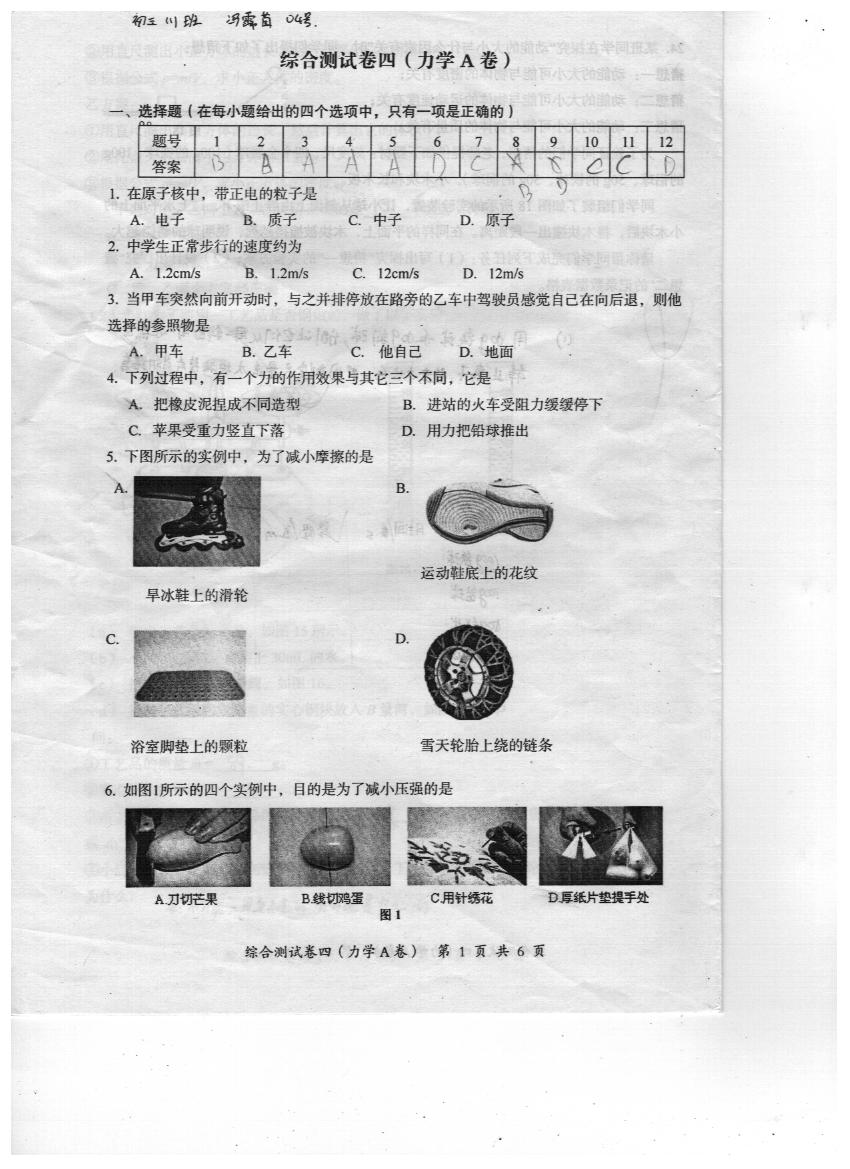 初三（1）班 冯露茵 04号.
综合测试卷四（力学A卷）
一、选择题（在每小题给出的四个选项中，只有一项是正确的）
题号 1 2 3 4 5 6 7 8 9 10 11 12
答案 B B A A A D C A C C D
B D
1. 在原子核中，带正电的粒子是
A. 电子 B. 质子 C. 中子 D. 原子
2. 中学生正常步行的速度约为
A. 1.2cm/s B. 1.2m/s C. 12cm/s D. 12m/s
3. 当甲车突然向前开动时，与之并排停放在路旁的乙车中驾驶员感觉自己在向后退，则他
选择的参照物是
A. 甲车 B. 乙车 C. 他自己 D. 地面
4. 下列过程中，有一个力的作用效果与其它三个不同，它是
A. 把橡皮泥捏成不同造型 B. 进站的火车受阻力缓缓停下
C. 苹果受重力竖直下落 D. 用力把铅球推出
5. 下图所示的实例中，为了减小摩擦的是
A. B.
旱冰鞋上的滑轮 运动鞋底上的花纹
C. D.
浴室脚垫上的颗粒 雪天轮胎上绕的链条
6. 如图1所示的四个实例中，目的是为了减小压强的是
A.刀切芒果 B.线切鸡蛋 C.用针绣花 D.厚纸片垫提手处
图1
综合测试卷四（力学A卷） 第 1 页 共 6 页